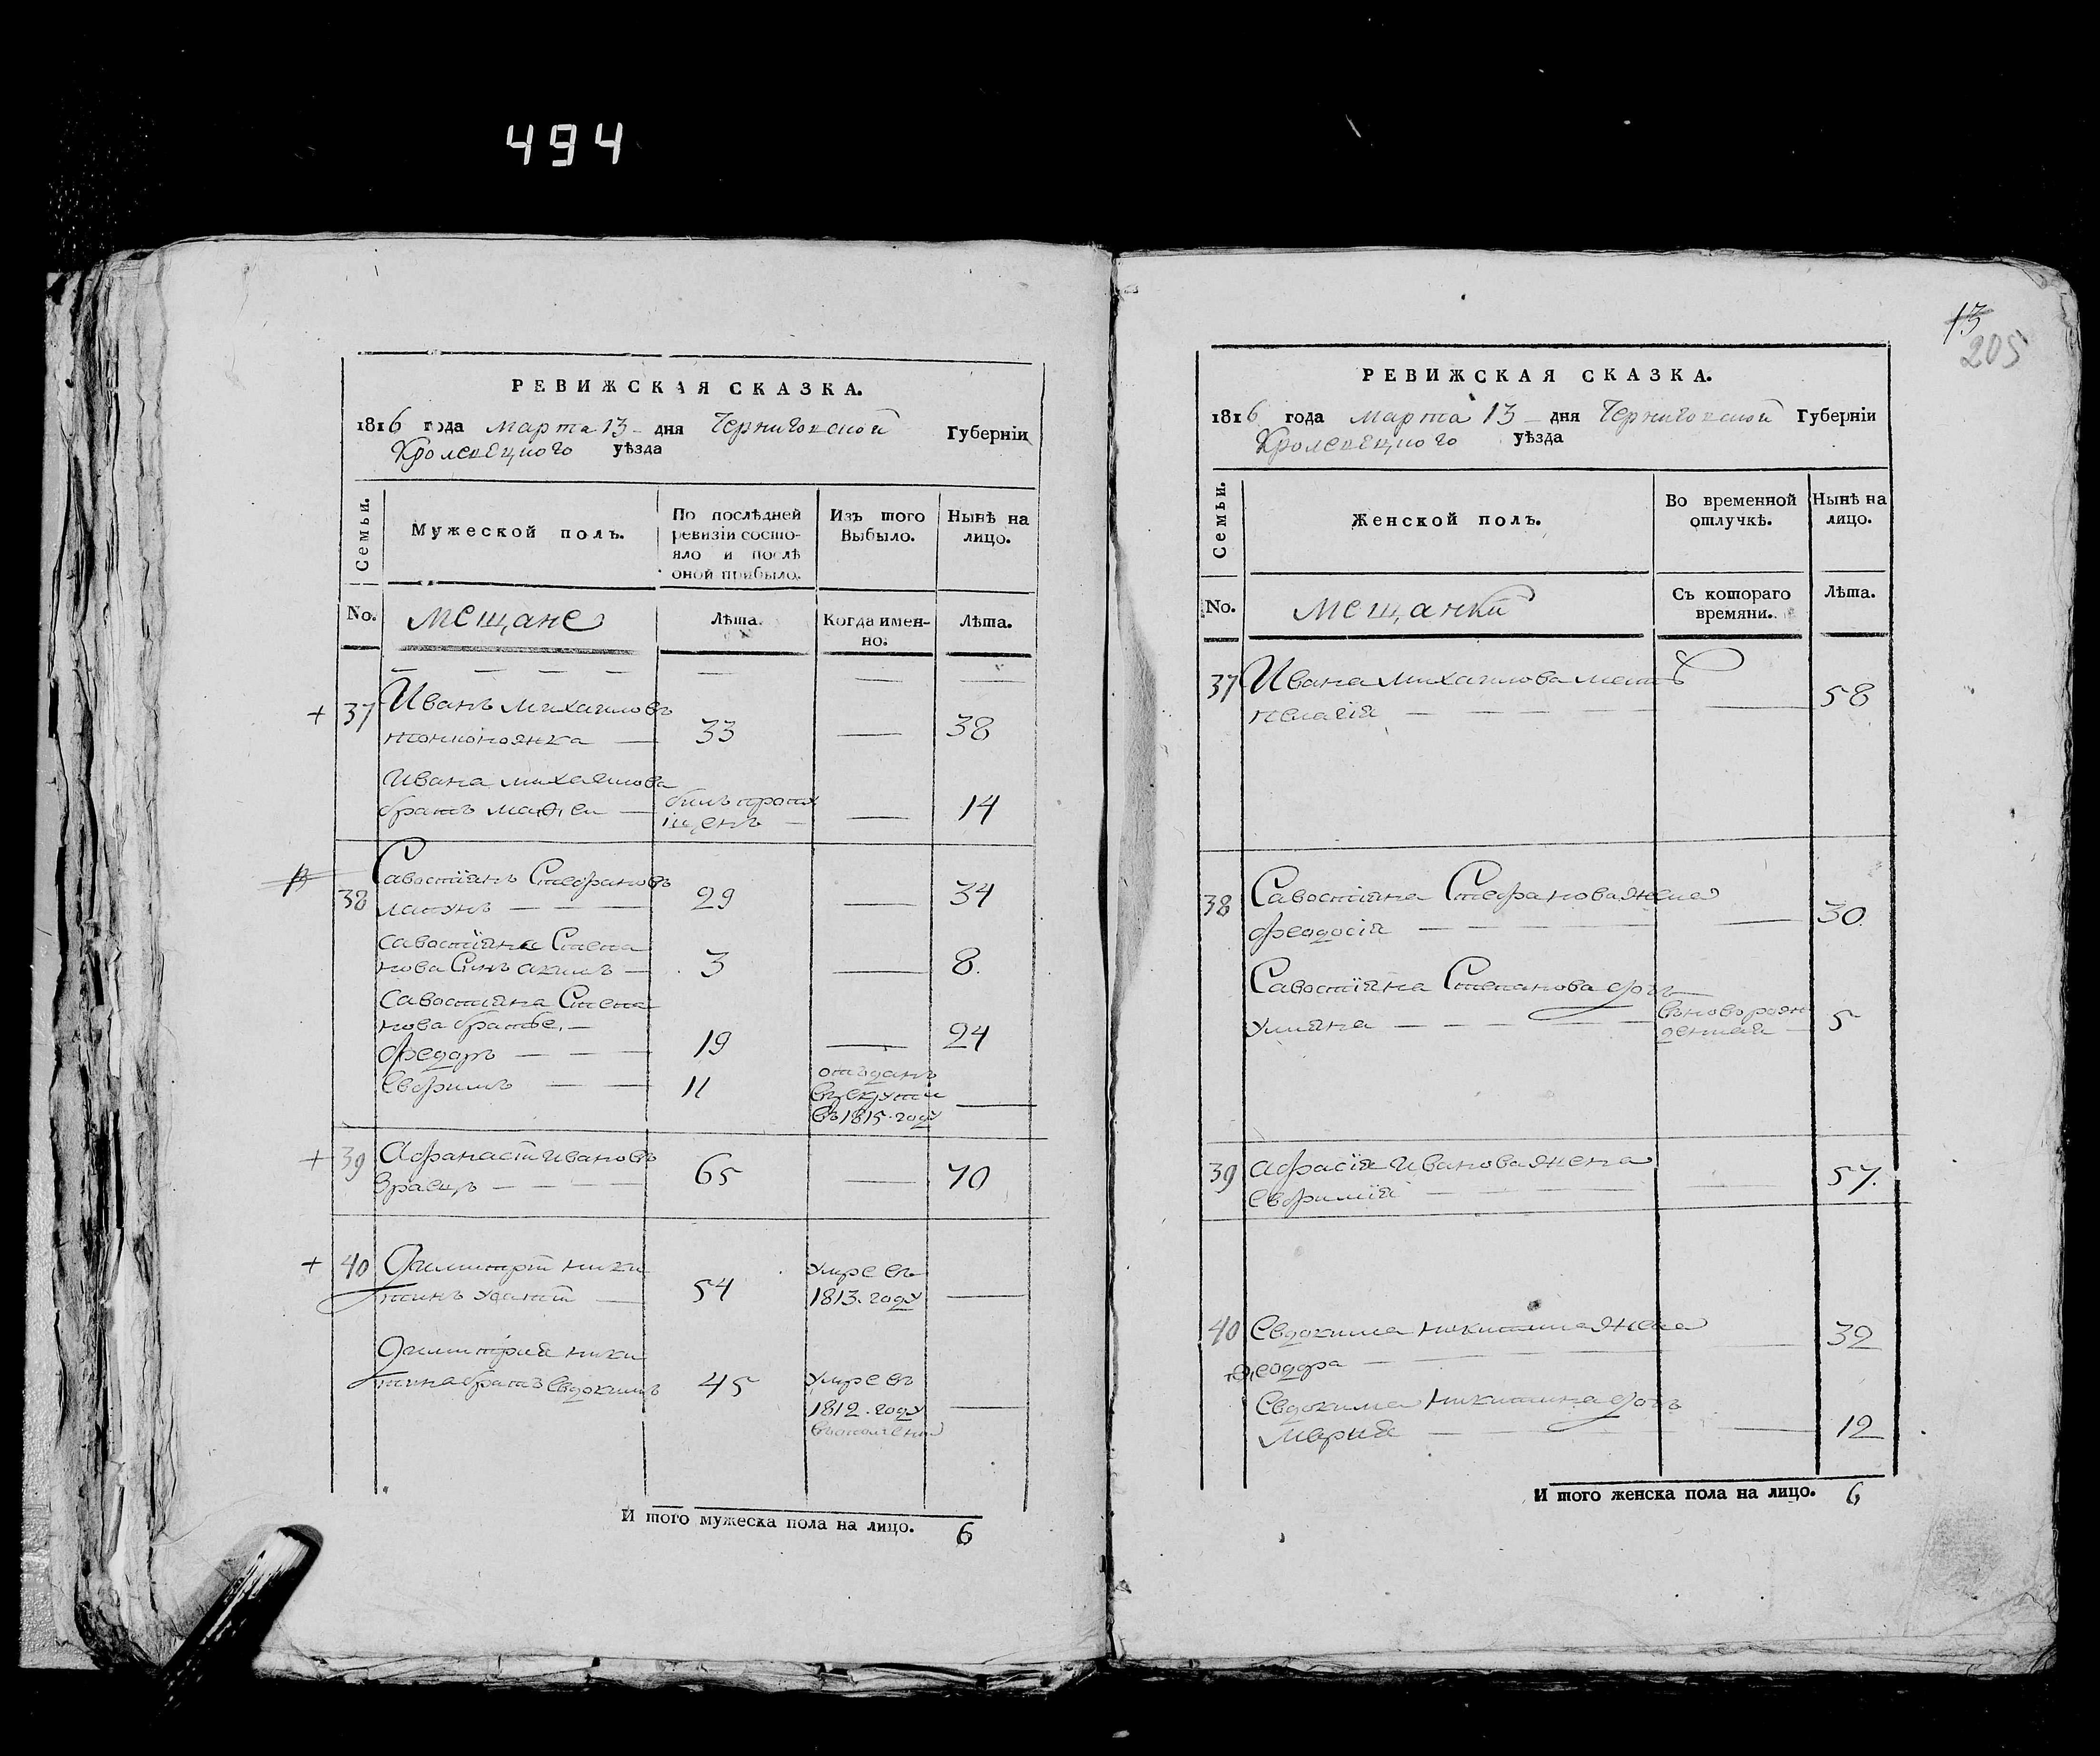 494
РЕВИЖСКАЯ СКАЗКА.
1816 года марта 13 дня Черниговской Губерніи
Кролевецкого уѣзда
Семьи.
Мужеской полъ.
По послѣдней ревизіи состояло и послѣ оной прибыло.
Изъ того Выбыло.
Нынѣ на лицо.
No.
мещане
Лѣта.
Когда именно:
Лѣта.
37 Иванъ михаиловъ
33 — 38
Ивана михаилова
братъ — былъ пропу
щенъ — 14
38 Савостіянъ Стефановъ
29 — 34
савостіяна Степа
нова Синъ акимъ — 3 — 8.
савостіяна Степа
нова братья, —
федоръ — 19 — 24
Ефримъ — 11
отъданъ
въ рекруты
въ 1815. году
39 Афанасій Ивановъ
65 — 70
40 Димитрій ники
тинъ — 54
умре въ
1813. году
Димитрія ники
тина братъ Евдокимъ 45
умре въ
1812. году
И того мужеска пола на лицо. 6
13
205
РЕВИЖСКАЯ СКАЗКА.
1816 года марта 13 дня Черниговской Губерніи
Кролевецкого уѣзда
Семьи.
Женской полъ.
Во временной отлучкѣ.
Нынѣ на лицо.
No.
мещанки
Съ котораго времяни.
Лѣта.
37 Ивана михаилова мать
пелагія — 58
38 Савостіяна Стефанова жена
феодосія — 30
Савостіяна Степанова дочь
уліяна — вновьрож
денная — 5
39 Ивановажена
Евфимія — 57.
40 Евдокима никитина жена
Феодора — 32
Евдокима Никитина дочь
Марія — 12
И того женска пола на лицо. 6